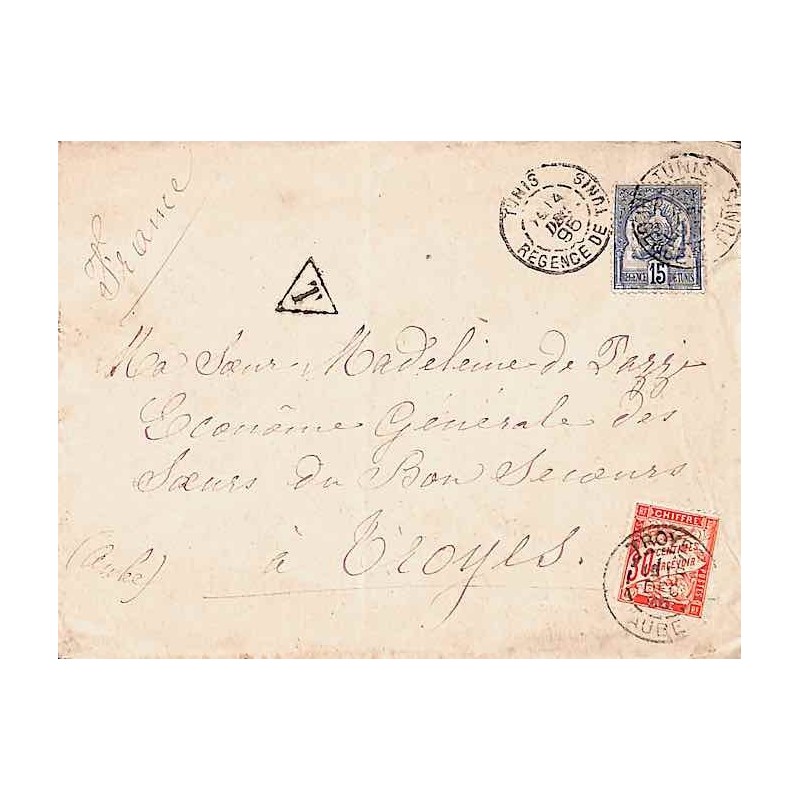 France
TUNIS TUNIS
14
DEC
95
REGENCE DE
TUNIS TUNIS
15
REGENCE DE TUNIS
T
Ma Sœur Madeleine de Pazzi
Econôme Générale des
Sœurs du Bon Secours
à Troyes.
(Aube)
CHIFFRE
30 CENTIMES
À PERCEVOIR
TROYES
DEC
AUBE